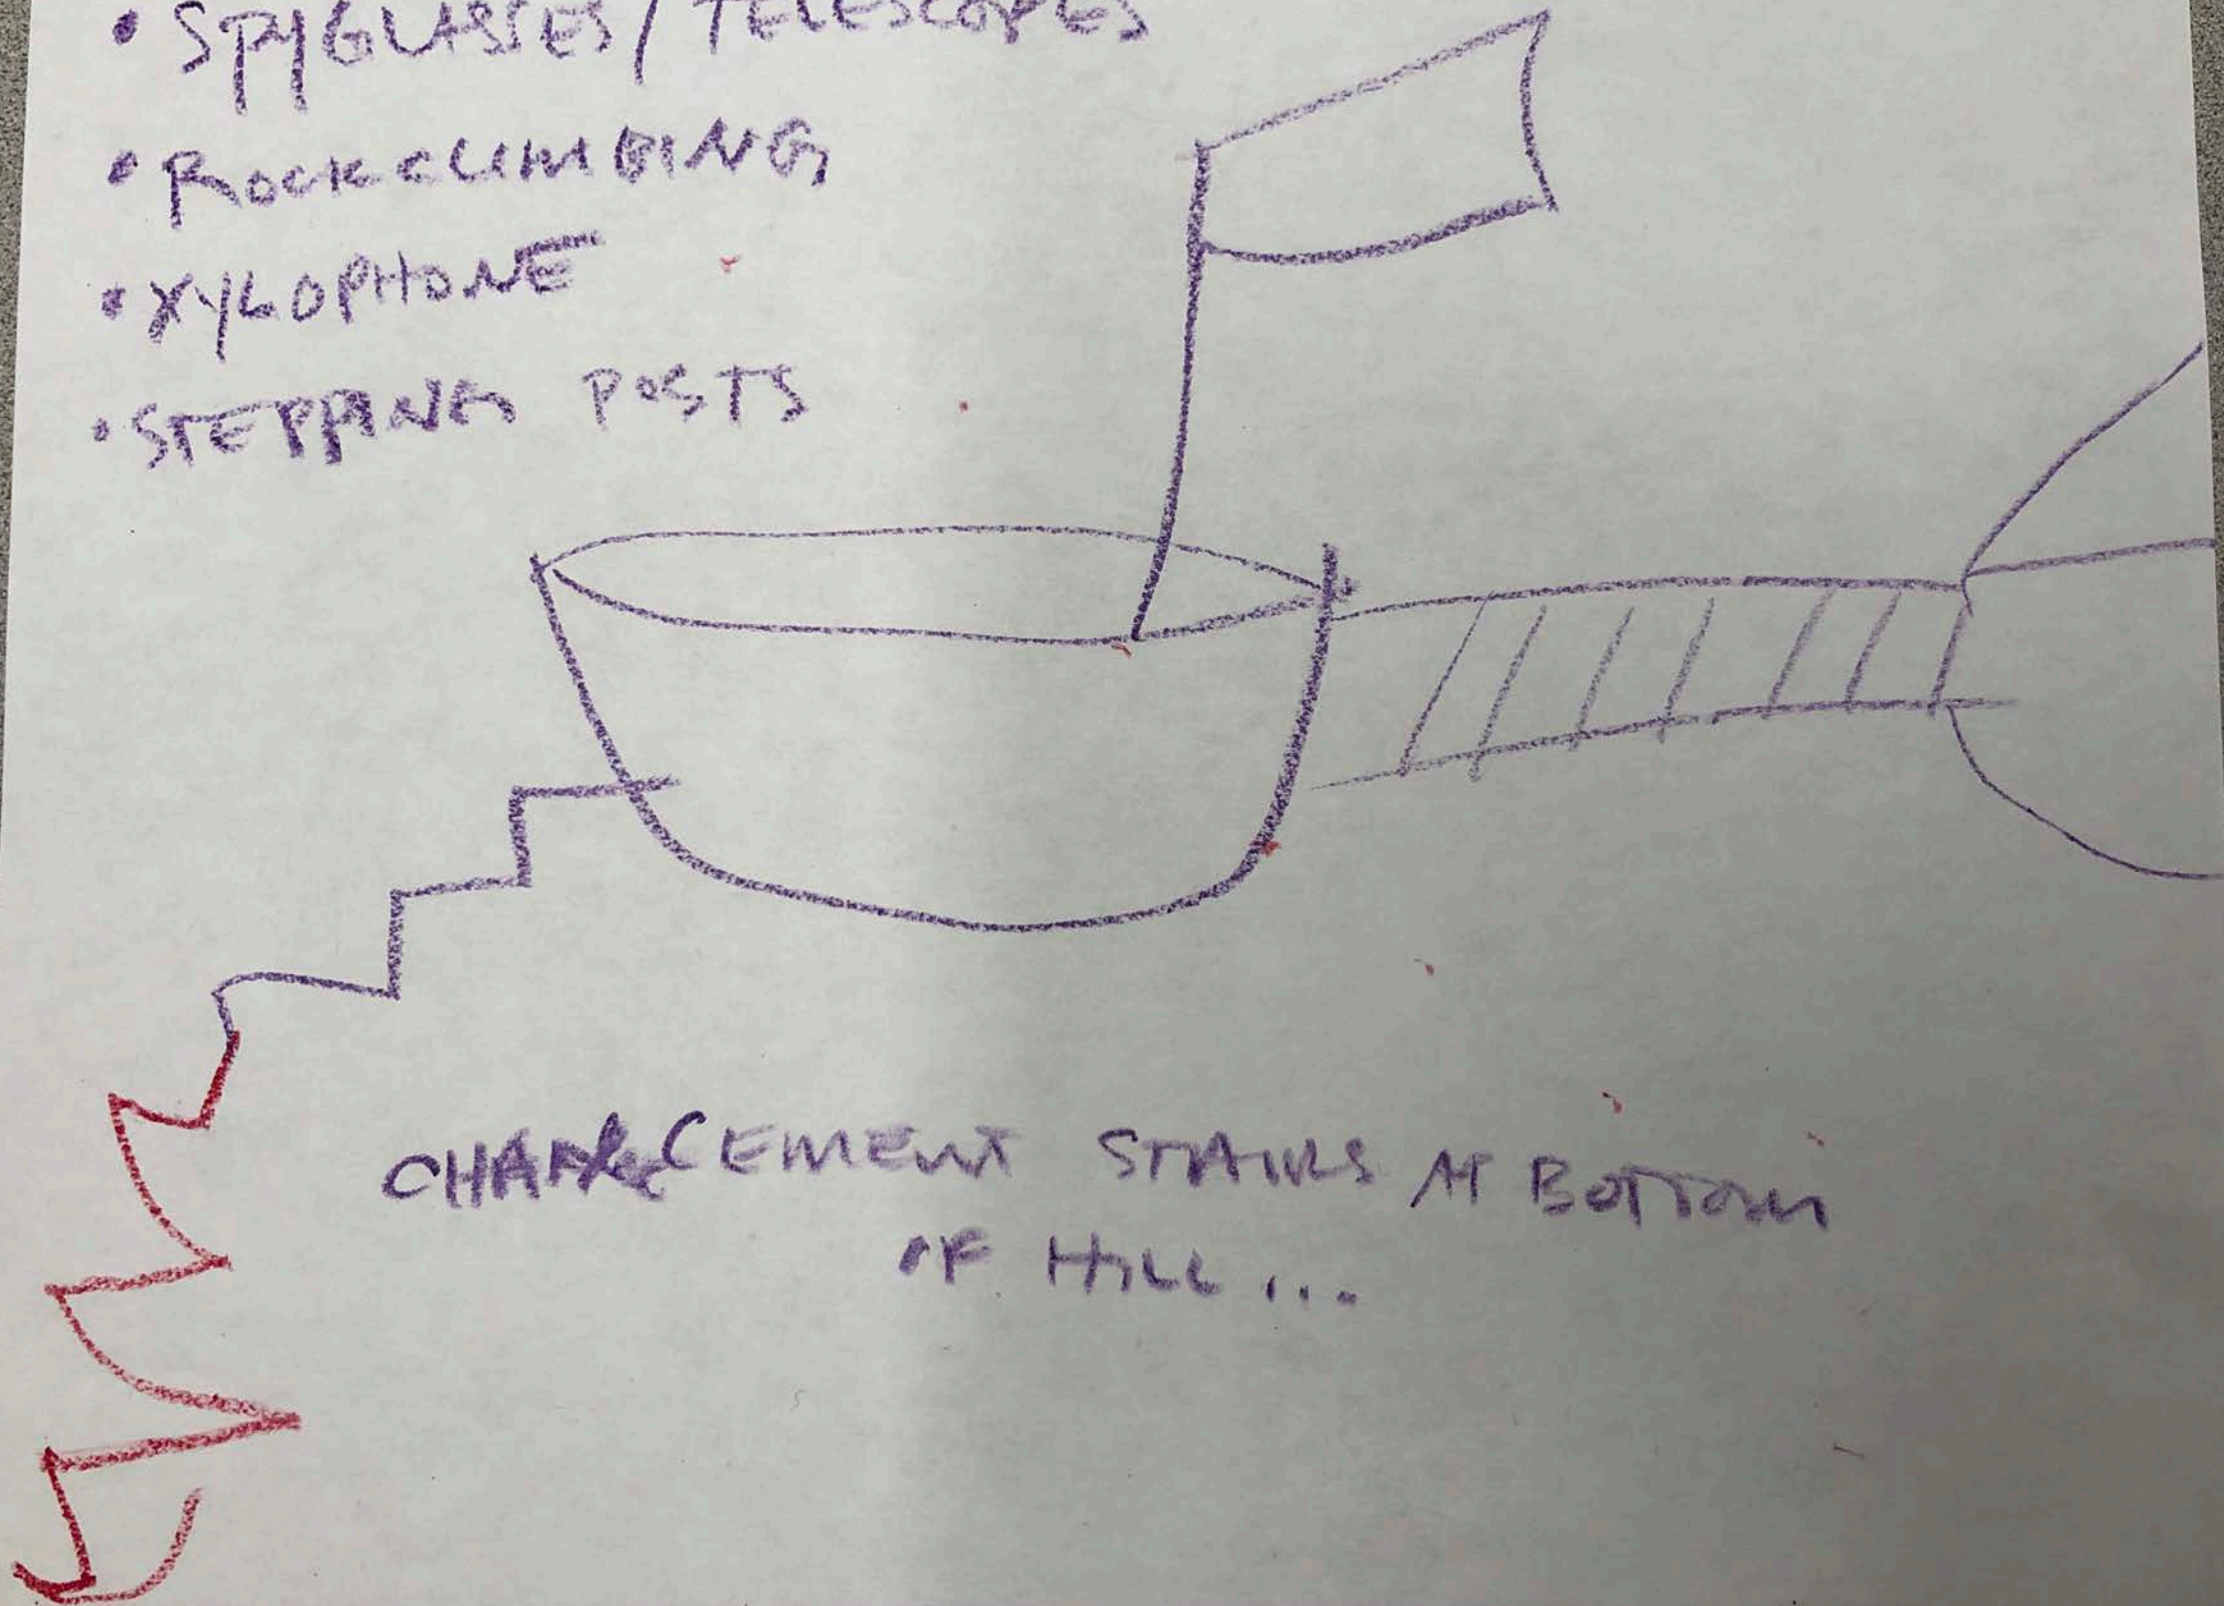 • SPYGLASSES / TELESCOPES
• ROCK CLIMBING
• XYLOPHONE
• STEPPING POSTS
CEMENT STAIRS AT BOTTOM
OF HILL ...